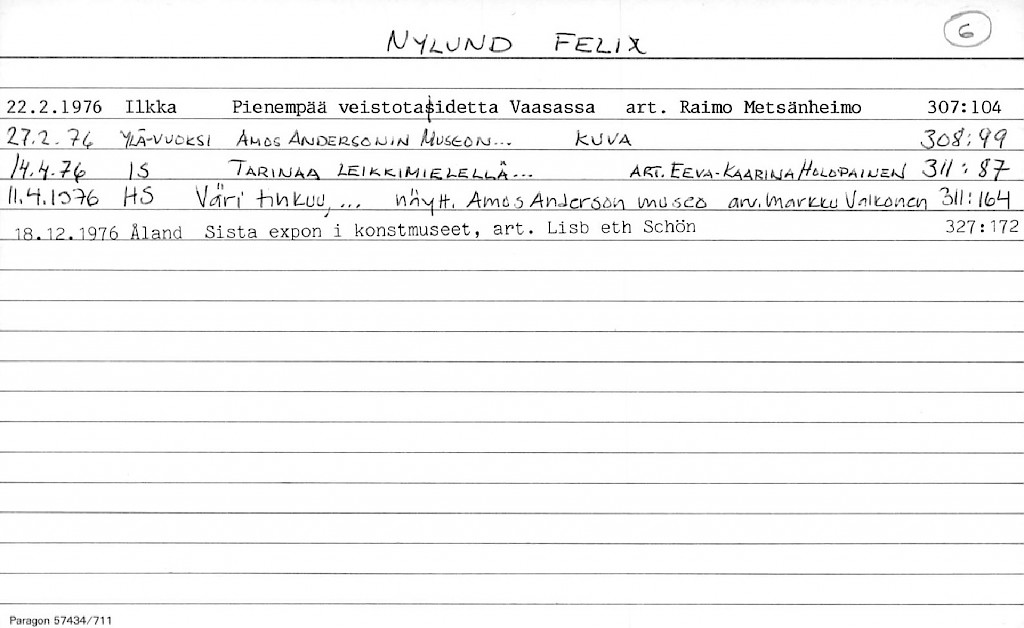 NYLUND FELIX 6
22.2.1976 Ilkka Pienempää veistotasidetta Vaasassa art. Raimo Metsänheimo 307:104
27.2.76 YLÄ-VUOKSI AMOS ANDERSONIN MUSEON... KUVA 308:99
14.4.76 IS TARINAA LEIKKIMIELELLÄ... ART. EEVA-KAARINA HOLOPAINEN 311:87
11.4.1976 HS Väri tihkuu, ... näytt. Amos Anderson museo arv. Markku Valkonen 311:164
18.12.1976 Åland Sista expon i konstmuseet, art. Lisb eth Schön 327:172
Paragon 57434/711